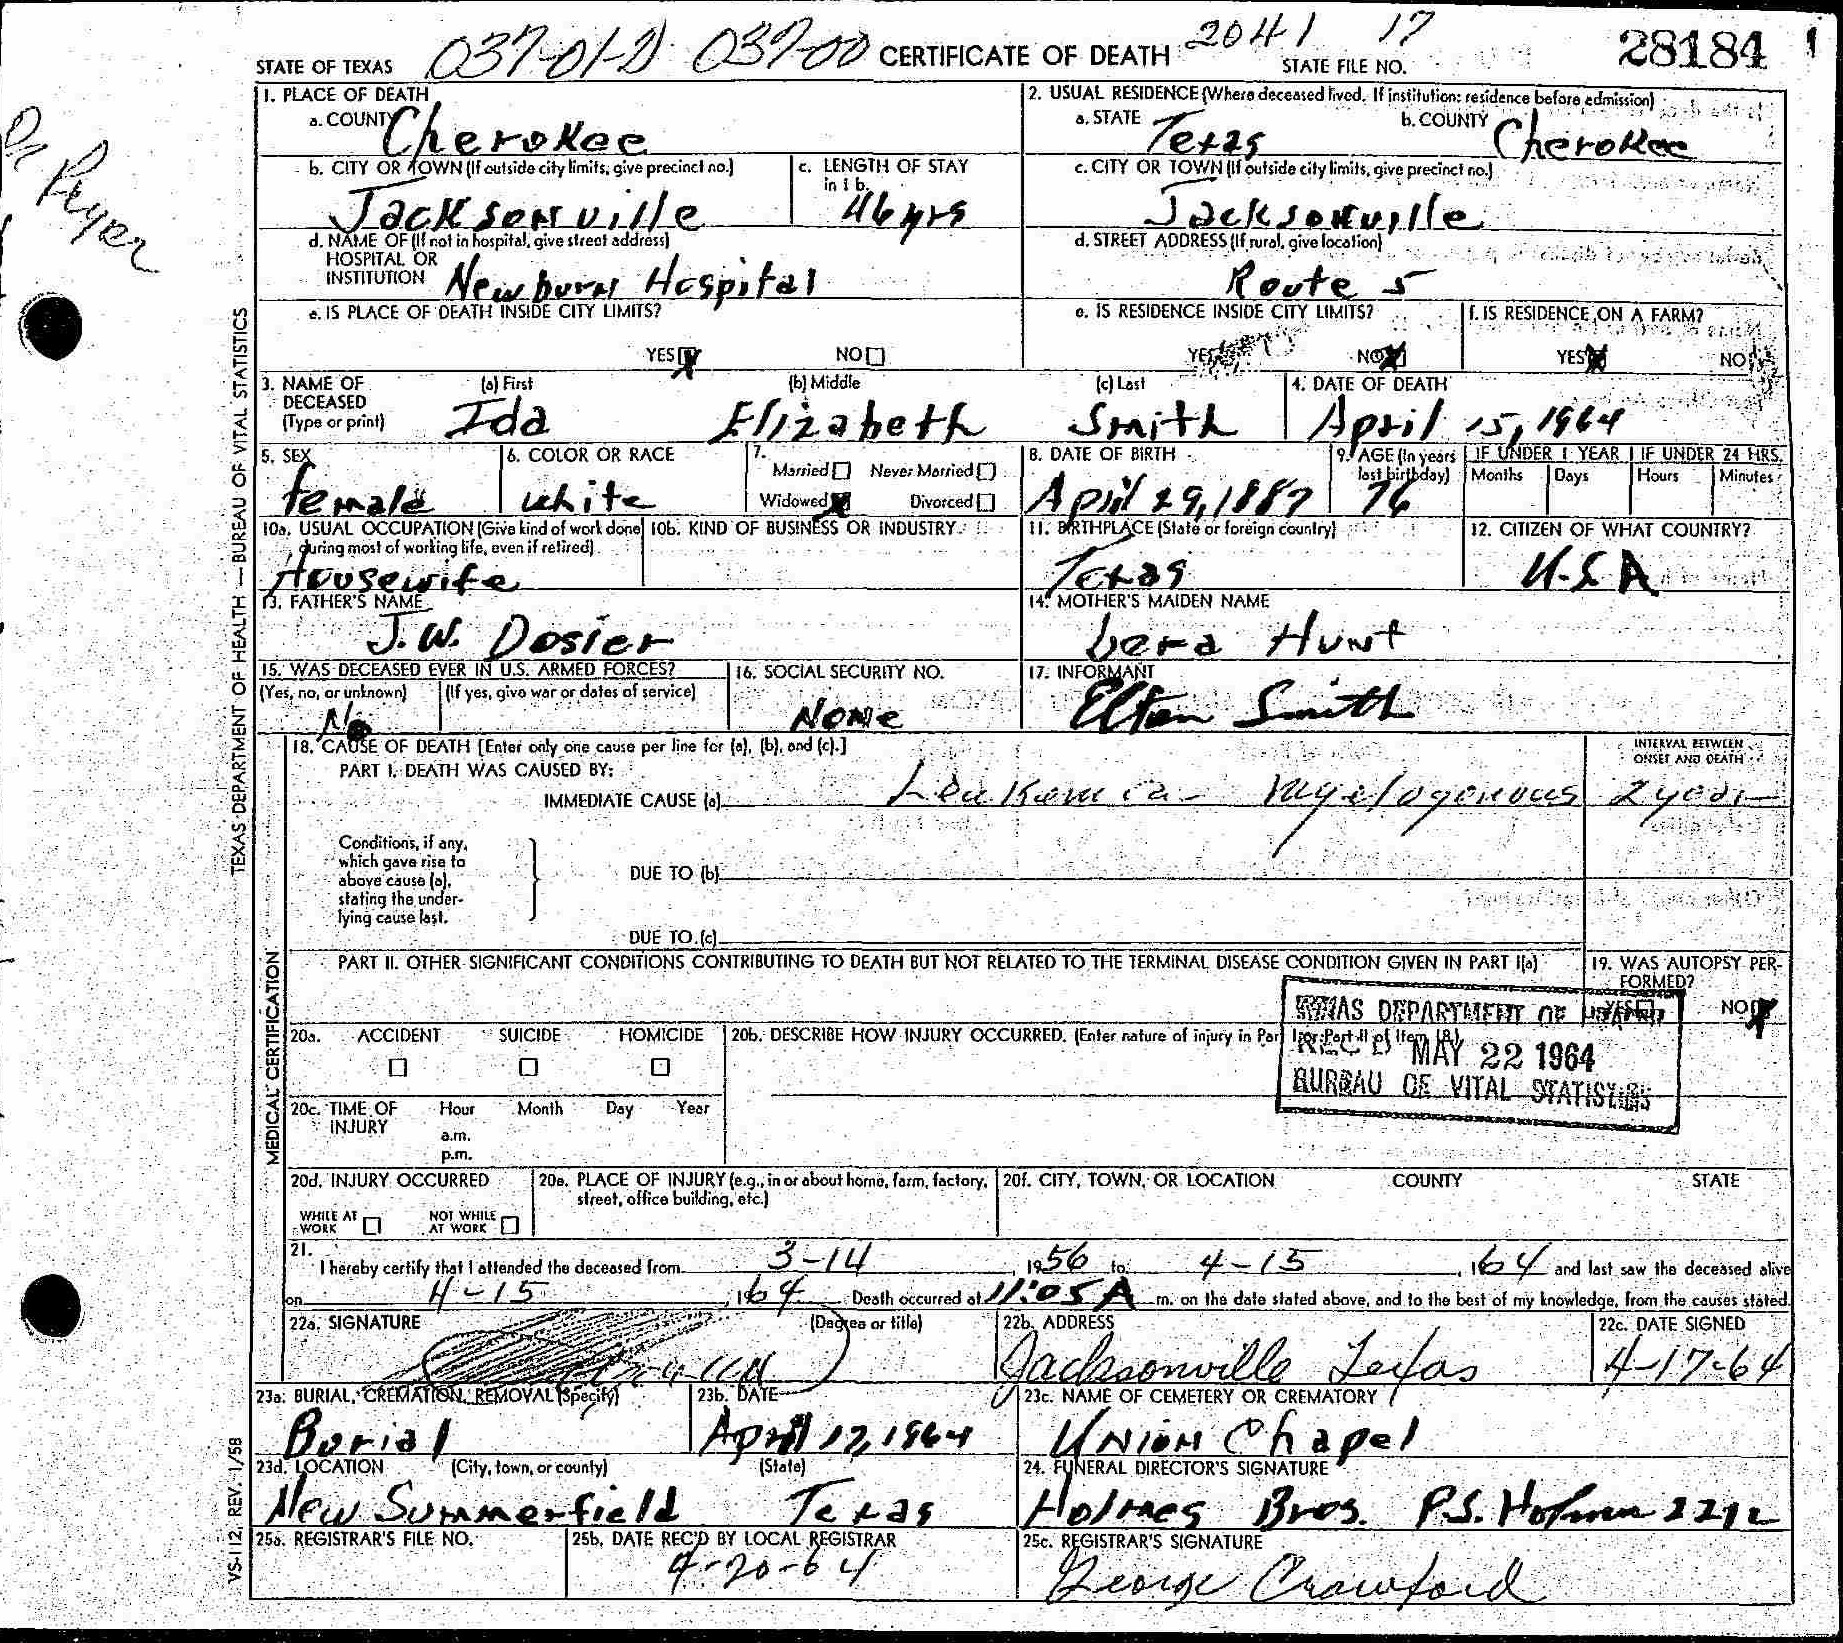 STATE OF TEXAS 037-01-D 037-00 CERTIFICATE OF DEATH 2041 17 STATE FILE NO. 28184
1. PLACE OF DEATH
a. COUNTY Cherokee
2. USUAL RESIDENCE (Where deceased lived. If institution: residence before admission)
a. STATE Texas b. COUNTY Cherokee
b. CITY OR TOWN (If outside city limits, give precinct no.) Jacksonville
c. LENGTH OF STAY in 1 b. 46 yrs
c. CITY OR TOWN (If outside city limits, give precinct no.) Jacksonville
d. NAME OF (If not in hospital, give street address) HOSPITAL OR INSTITUTION Newburn Hospital
d. STREET ADDRESS (If rural, give location) Route 5
e. IS PLACE OF DEATH INSIDE CITY LIMITS?
YES NO
e. IS RESIDENCE INSIDE CITY LIMITS?
YES NO
f. IS RESIDENCE ON A FARM?
YES NO
3. NAME OF DECEASED (Type or print)
(a) First Ida (b) Middle Elizabeth (c) Last Smith
4. DATE OF DEATH April 15, 1964
5. SEX female
6. COLOR OR RACE white
7. Married Never Married
Widowed Divorced
8. DATE OF BIRTH April 29, 1887
9. AGE (In years last birthday) 76
IF UNDER 1 YEAR Months Days
IF UNDER 24 HRS. Hours Minutes
10a. USUAL OCCUPATION (Give kind of work done during most of working life, even if retired) Housewife
10b. KIND OF BUSINESS OR INDUSTRY
11. BIRTHPLACE (State or foreign country) Texas
12. CITIZEN OF WHAT COUNTRY? U.S.A
13. FATHER'S NAME J.W. Dosier
14. MOTHER'S MAIDEN NAME Lera Hunt
15. WAS DECEASED EVER IN U.S. ARMED FORCES?
(Yes, no, or unknown) No (If yes, give war or dates of service)
16. SOCIAL SECURITY NO. None
17. INFORMANT Elton Smith
18. CAUSE OF DEATH [Enter only one cause per line for (a), (b), and (c).]
PART I. DEATH WAS CAUSED BY:
INTERVAL BETWEEN ONSET AND DEATH
IMMEDIATE CAUSE (a) Leukemia - myelogenous 2 years
Conditions, if any, which gave rise to above cause (a), stating the underlying cause last.
DUE TO (b)
DUE TO (c)
PART II. OTHER SIGNIFICANT CONDITIONS CONTRIBUTING TO DEATH BUT NOT RELATED TO THE TERMINAL DISEASE CONDITION GIVEN IN PART I(a)
19. WAS AUTOPSY PERFORMED?
YES NO
20a. ACCIDENT SUICIDE HOMICIDE
20b. DESCRIBE HOW INJURY OCCURRED. (Enter nature of injury in Part I or Part II of Item 18.)
TEXAS DEPARTMENT OF HEALTH
REC'D MAY 22 1964
BUREAU OF VITAL STATISTICS
20c. TIME OF INJURY Hour Month Day Year
a.m.
p.m.
20d. INJURY OCCURRED
WHILE AT WORK NOT WHILE AT WORK
20e. PLACE OF INJURY (e.g., in or about home, farm, factory, street, office building, etc.)
20f. CITY, TOWN, OR LOCATION COUNTY STATE
21. I hereby certify that I attended the deceased from 3-14, 1956 to 4-15, 1964 and last saw the deceased alive
on 4-15, 1964. Death occurred at 11:05 A m. on the date stated above, and to the best of my knowledge, from the causes stated.
22a. SIGNATURE (Degree or title)
22b. ADDRESS Jacksonville Texas
22c. DATE SIGNED 4-17-64
23a. BURIAL, CREMATION, REMOVAL (Specify) Burial
23b. DATE April 17, 1964
23c. NAME OF CEMETERY OR CREMATORY Union Chapel
23d. LOCATION (City, town, or county) (State)
New Summerfield Texas
24. FUNERAL DIRECTOR'S SIGNATURE
Holmes Bros. P.S. Holmes 2212
25a. REGISTRAR'S FILE NO.
25b. DATE REC'D BY LOCAL REGISTRAR 4-20-64
25c. REGISTRAR'S SIGNATURE George Crawford
TEXAS DEPARTMENT OF HEALTH — BUREAU OF VITAL STATISTICS
MEDICAL CERTIFICATION
VS-112, REV. 1/58